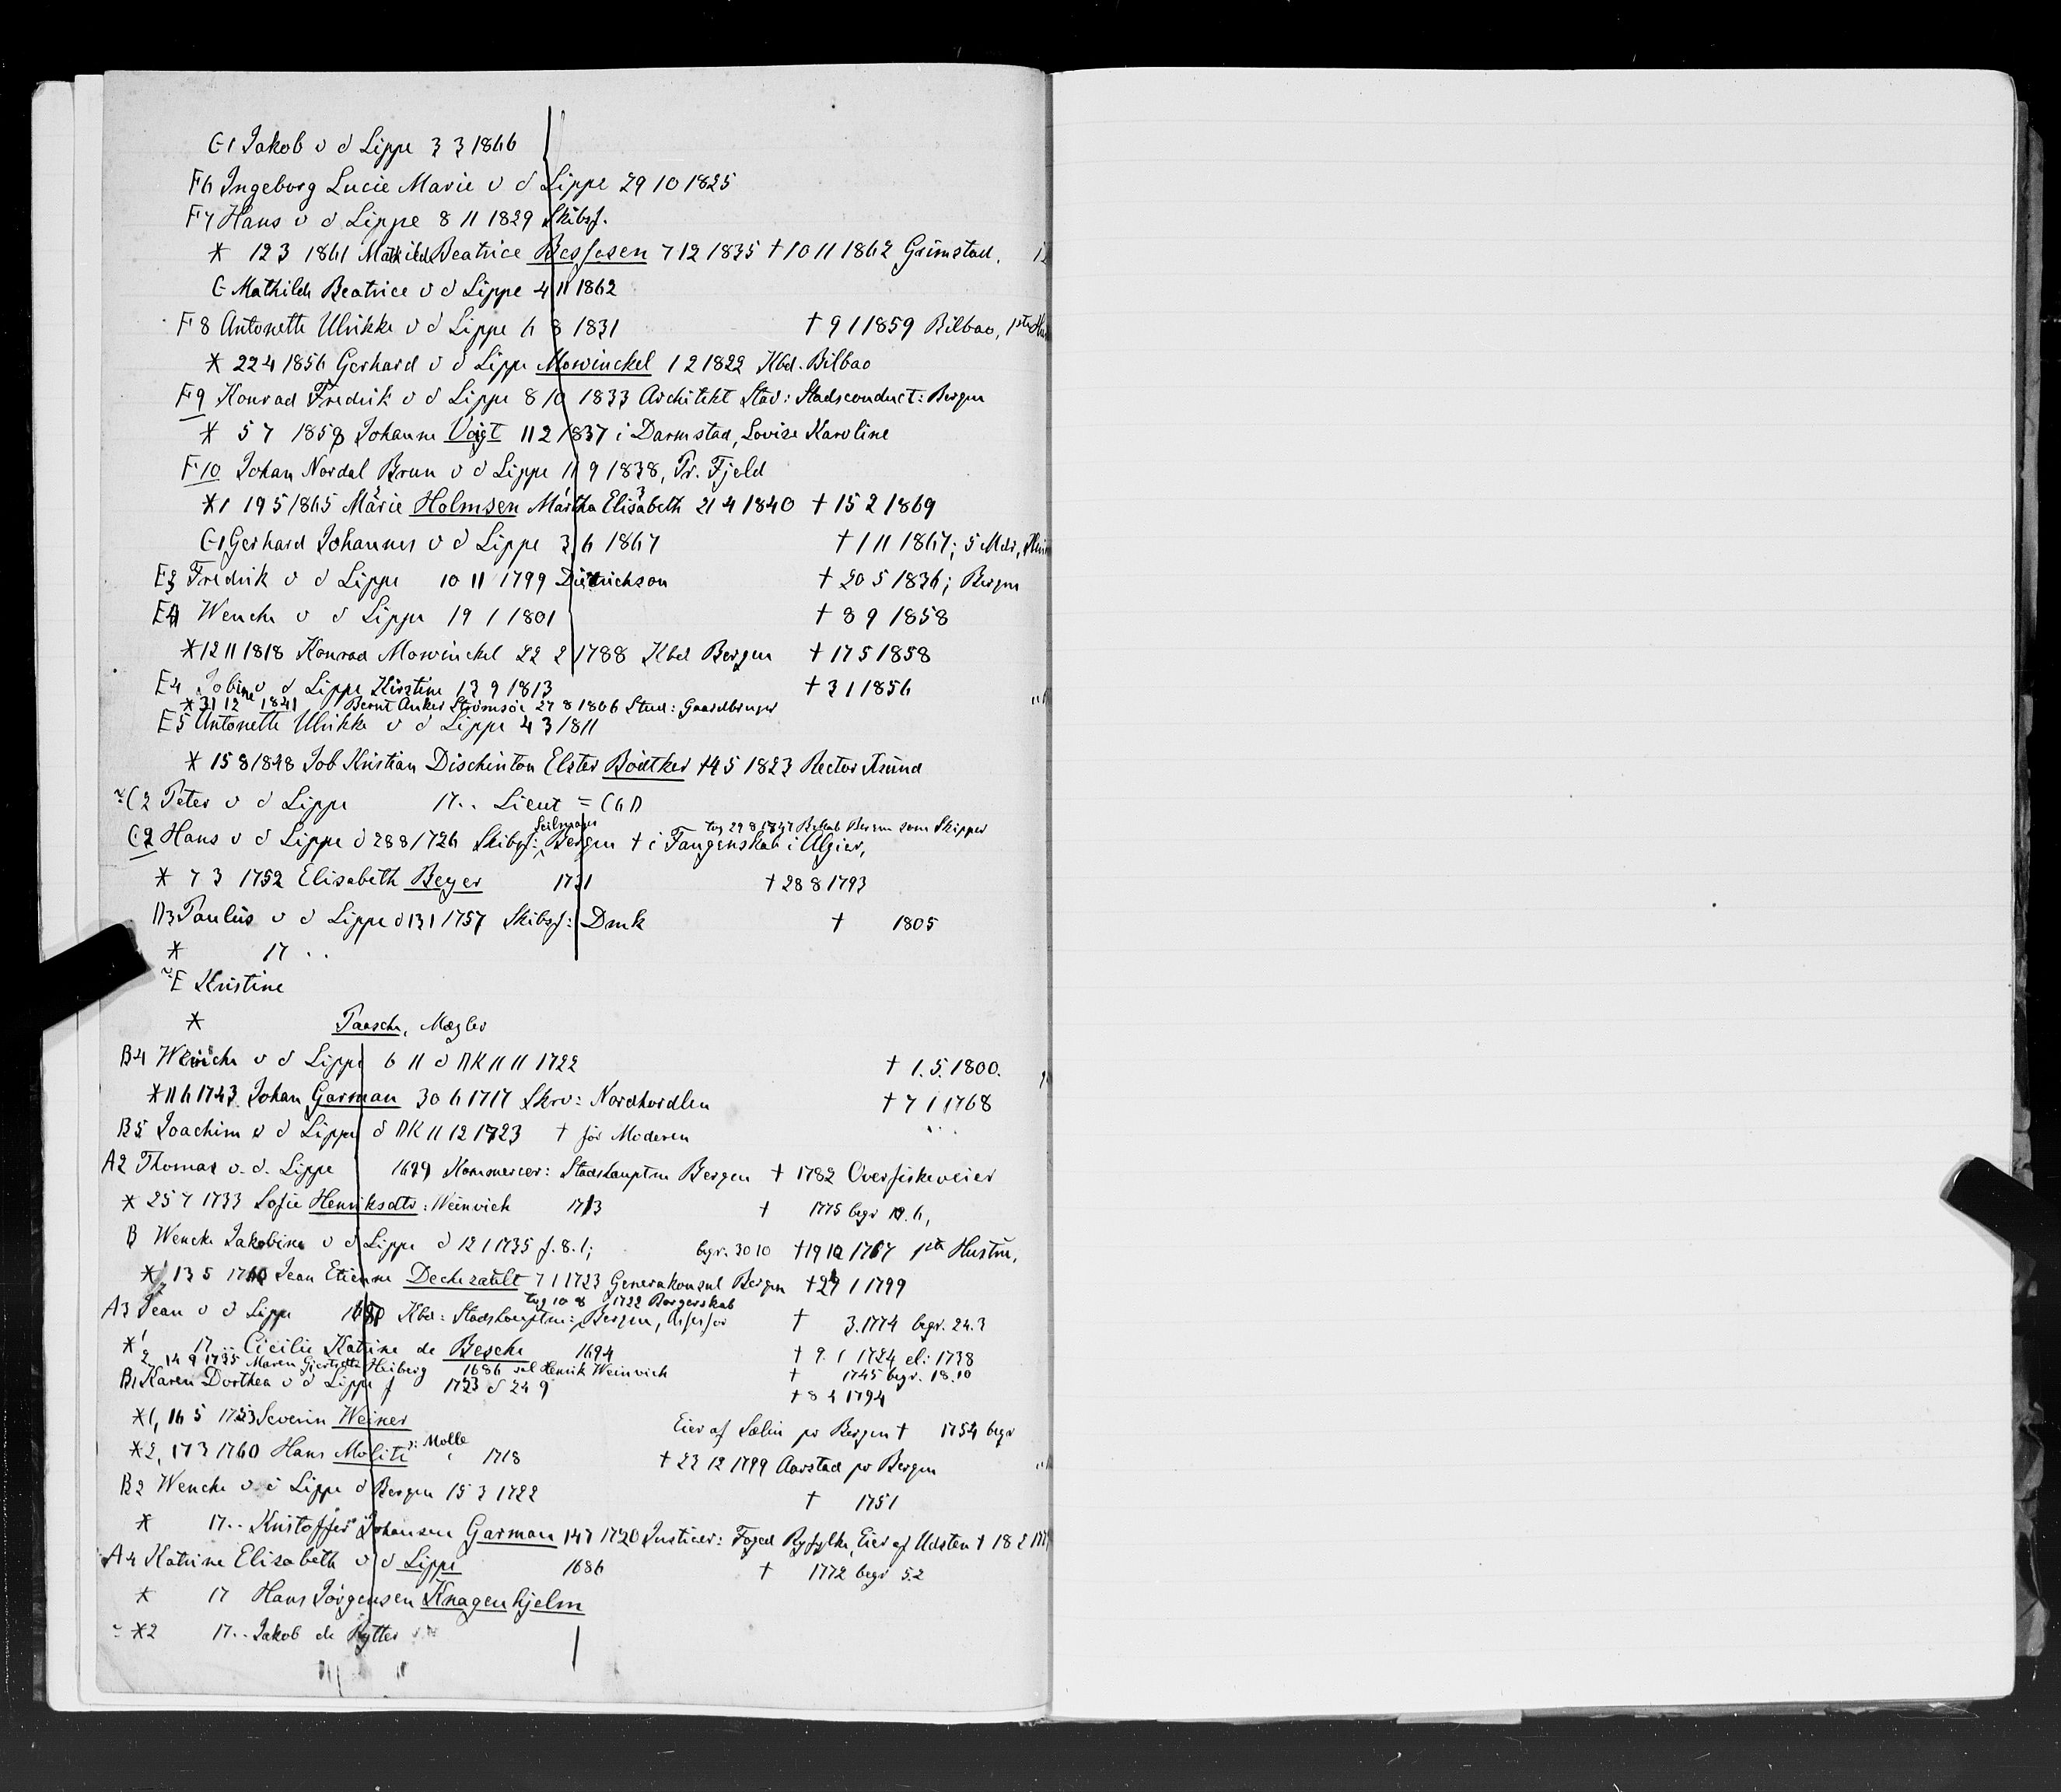 G1 Jakob v d Lippe 3 3 1866
F6 Ingeborg Lucie Marie v d Lippe 29 10 1825
F7 Hans v d Lippe 8 11 1829 Skibsf.
* 12 3 1861 Mathilde Beatrice Bessesen 7 12 1835 † 10 11 1862 Grimstad.
G Mathilde Beatrice v d Lippe 4 11 1862
F8 Antonette Ulrikke v d Lippe 6 8 1831 † 9 1 1859 Bilbao, 1ste
* 22 4 1856 Gerhard v d Lippe Mowinckel 1 2 1822 Kbd. Bilbao
F9 Konrad Fredrik v d Lippe 8 10 1833 Architekt Stav: Stadsconduct: Bergen
* 5 7 1858 Johanne Voigt 11 2 1837 i Darmstad, Lovise Karoline
F10 Johan Nordal Brun v d Lippe 11 9 1838, Pr. Fjeld
*1 19 5 1865 Marie Holmsen Martha Elisabeth 21 4 1840 † 15 2 1869
G1 Gerhard Johannes v d Lippe 3 6 1867 † 1 11 1867; 5 Mdr,
E3 Fredrik v d Lippe 10 11 1799 Dietrichson † 20 5 1836; Bergen
E4 Wencke v d Lippe 19 1 1801 † 8 9 1858
* 12 11 1818 Konrad Mowinckel 22 2 1788 Kbd Bergen † 17 5 1858
E4 Jobine v d Lippe Kirstine 13 9 1813 † 3 1 1856
* 31 12 1841 Bernt Anker Strømsøe 27 8 1806 Stud: Gaardbruger
E5 Antonette Ulrikke v d Lippe 4 3 1811
* 15 8 1848 Job Kristian Dischinton Elster Bödtker 14 5 1823 Rector Ksund
~C2 Peter v d Lippe 17.. Lieut =
C2 Hans v d Lippe d 28 8 1726 Skibsf: Seilmager Bergen † i Fangenskab i Algier, tog 29 8 1747 Bskab Bergen som Skipper
* 7 3 1752 Elisabeth Beyer 1731 † 28 8 1793
D3 Paulus v d Lippe d 13 1 1757 Skibsf: Dmk † 1805
* 17 ..
~E Kristine
* Paasche, Mægler
B4 Wencke v d Lippe 6 11 d NK 11 11 1722 † 1. 5. 1800.
* 11 6 1743 Johan Garman 30 6 1717 Skrv: Nordhordlen † 7 1 1768
B5 Joachim v d Lippe d NK 11 12 1723 † för Moderen
A2 Thomas v. d. Lippe 1699 Kommercer: Stadshauptm Bergen † 1782 Overfiskeveier
* 25 7 1733 Sofie Henriksdtr: Weinvich 1713 † 1775 begr 19. 6,
B Wencke Jakobine v d Lippe d 12 1 1735 f. 8. 1; begr. 30 10 † 19 10 1767 1ste Hustru,
* 13 5 1760 Jean Etienne Dechezaült 7 1 1723 Generakonsul Bergen † 29 1 1799
A3 Jean v d Lippe Kbd: Stadshauptm: tog 10 8 1722 Borgerskab Bergen, Assessor † 3. 1774 begr. 24. 3
*1 17.. Cicilie Katrine de Besche 1694 † 9. 1 1724 el: 1738
2, 14 9 1735 Maren Gjertsdtr Heiberg 1686 Henrik Weinvich † 1745 begr. 18. 10
B1 Karen Dorthea v d Lippe f 1723 d 24 9 † 8 4 1794
*1, 16 5 1753 Severin Weiner Eier af Sælin pr Bergen † 1754 begr
*2, 17 3 1760 Hans Moliti: Molle 1718 † 23 12 1799 Aarstad pr Bergen
B2 Wencke v. d Lippe d Bergen 15 3 1722 † 1751
* 17.. Kristoffer Johansen Garman 14 7 1720 Justicer: Foged Ryfylke, Eier af Udsten † 18 2
A4 Katrine Elisabeth v d Lippe 1686 † 1772 begr 5. 2
* 17 Hans Jörgensen Knagenhjelm
~ *2 17.. Jakob de Rytter